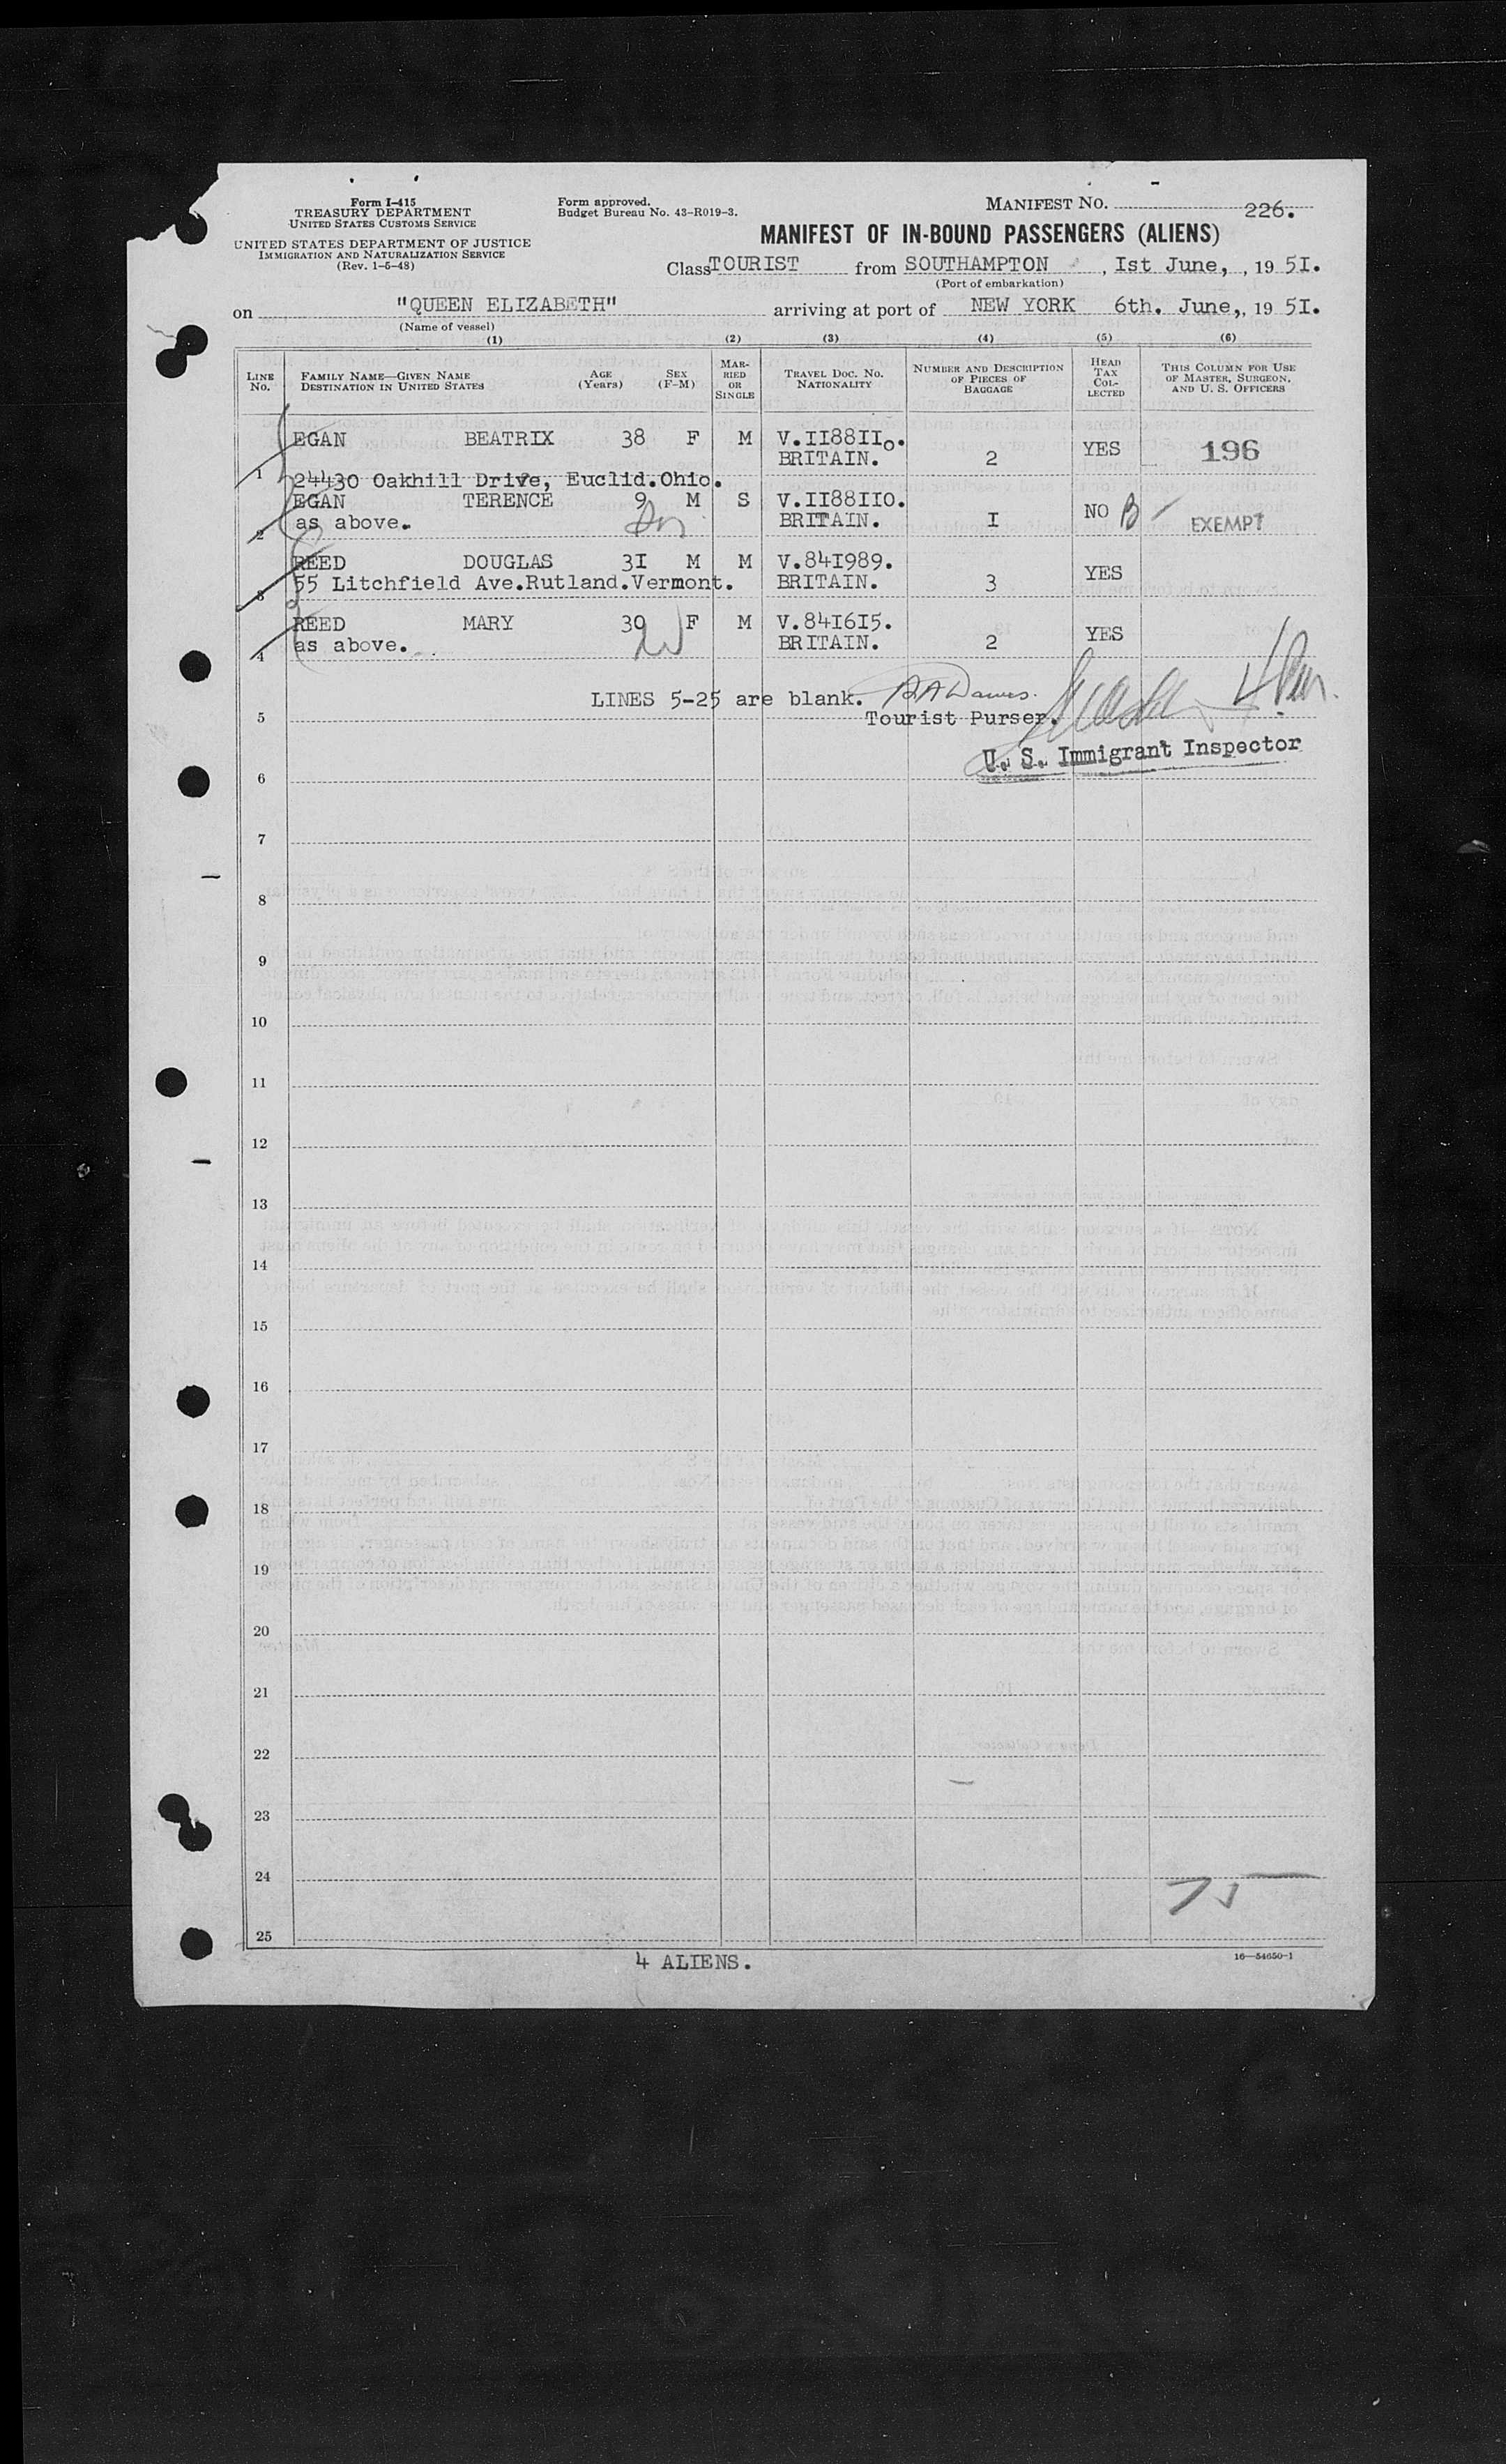 Form I-415
TREASURY DEPARTMENT
UNITED STATES CUSTOMS SERVICE
UNITED STATES DEPARTMENT OF JUSTICE
IMMIGRATION AND NATURALIZATION SERVICE
(Rev. 1-5-48)
Form approved.
Budget Bureau No. 43-R019-3.
MANIFEST NO. 226.
MANIFEST OF IN-BOUND PASSENGERS (ALIENS)
Class TOURIST from SOUTHAMPTON, Ist June, , 19 5I.
(Port of embarkation)
on "QUEEN ELIZABETH" arriving at port of NEW YORK 6th. June,, 19 5I.
(Name of vessel)
(1) (2) (3) (4) (5) (6)
LINE NO. FAMILY NAME—GIVEN NAME DESTINATION IN UNITED STATES AGE (Years) SEX (F-M) MARRIED OR SINGLE TRAVEL DOC. NO. NATIONALITY NUMBER AND DESCRIPTION OF PIECES OF BAGGAGE HEAD TAX COLLECTED THIS COLUMN FOR USE OF MASTER, SURGEON, AND U. S. OFFICERS
EGAN BEATRIX 38 F M V.II88IIo. YES 196
BRITAIN. 2
1 24430 Oakhill Drive, Euclid.Ohio.
EGAN TERENCE 9 M S V.II88IIO. NO B
2 as above. BRITAIN. I EXEMPT
REED DOUGLAS 3I M M V.84I989. YES
3 55 Litchfield Ave.Rutland.Vermont. BRITAIN. 3
REED MARY 30 F M V.84I6I5. YES
4 as above. W BRITAIN. 2
LINES 5-25 are blank.
5 Tourist Purser.
U. S. Immigrant Inspector
6
7
8
9
10
11
12
13
14
15
16
17
18
19
20
21
22
23
24
75
25
4 ALIENS.
16—54650-1